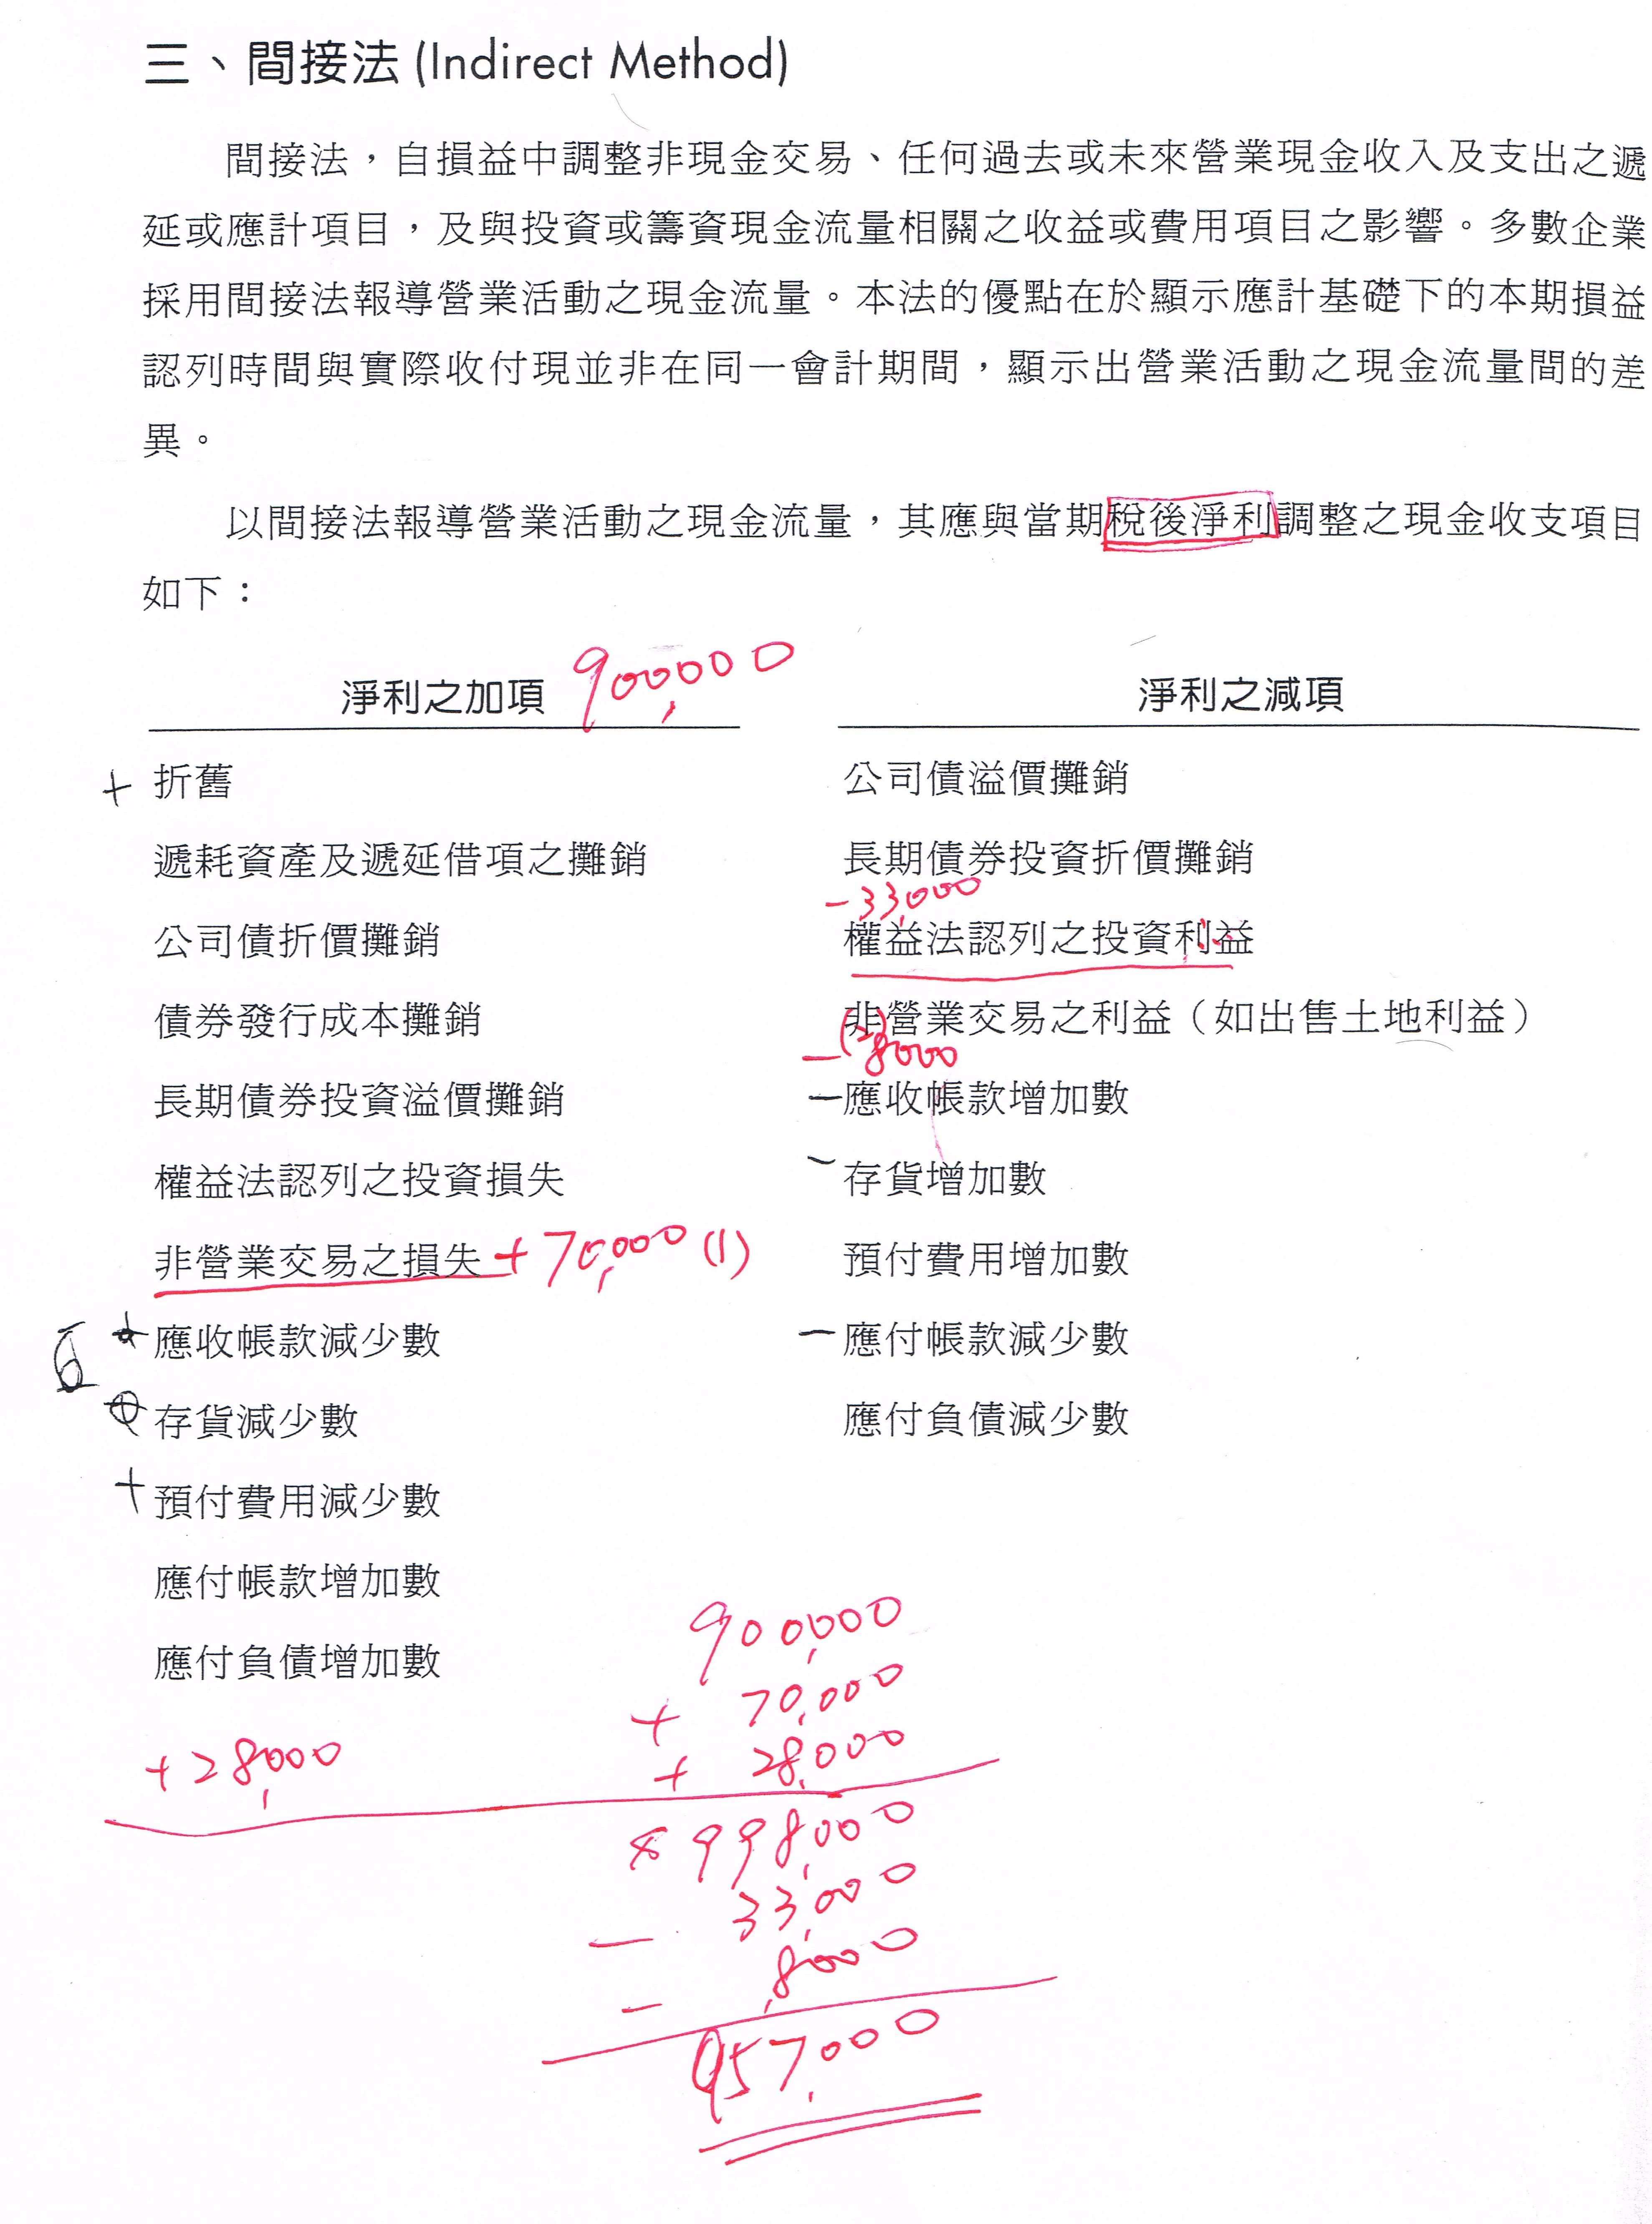 三、間接法 (Indirect Method)
間接法，自損益中調整非現金交易、任何過去或未來營業現金收入及支出之遞
延或應計項目，及與投資或籌資現金流量相關之收益或費用項目之影響。多數企業
採用間接法報導營業活動之現金流量。本法的優點在於顯示應計基礎下的本期損益
認列時間與實際收付現並非在同一會計期間，顯示出營業活動之現金流量間的差
異。
以間接法報導營業活動之現金流量，其應與當期稅後淨利調整之現金收支項目
如下：
淨利之加項 900,000
+ 折舊
遞耗資產及遞延借項之攤銷
公司債折價攤銷
債券發行成本攤銷
長期債券投資溢價攤銷
權益法認列之投資損失
非營業交易之損失 + 70,000 (1)
應收帳款減少數
存貨減少數
+ 預付費用減少數
應付帳款增加數
應付負債增加數
+28,000
淨利之減項
公司債溢價攤銷
長期債券投資折價攤銷
-33,000
權益法認列之投資利益
非營業交易之利益（如出售土地利益）
- (2) 8000
- 應收帳款增加數
- 存貨增加數
預付費用增加數
- 應付帳款減少數
應付負債減少數
900,000
+ 70,000
+ 28,000
998,000
- 33,000
- 8,000
957,000